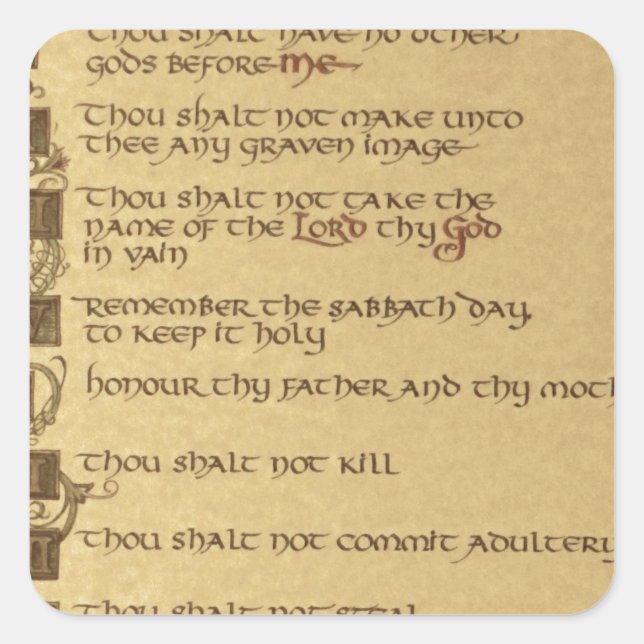 Thou shalt have no other
gods before me
Thou shalt not make unto
thee any graven image
Thou shalt not take the
name of the Lord thy God
in vain
Remember the Sabbath day,
to keep it holy
honour thy father and thy moth
Thou shalt not kill
Thou shalt not commit adultery
Thou shalt not steal